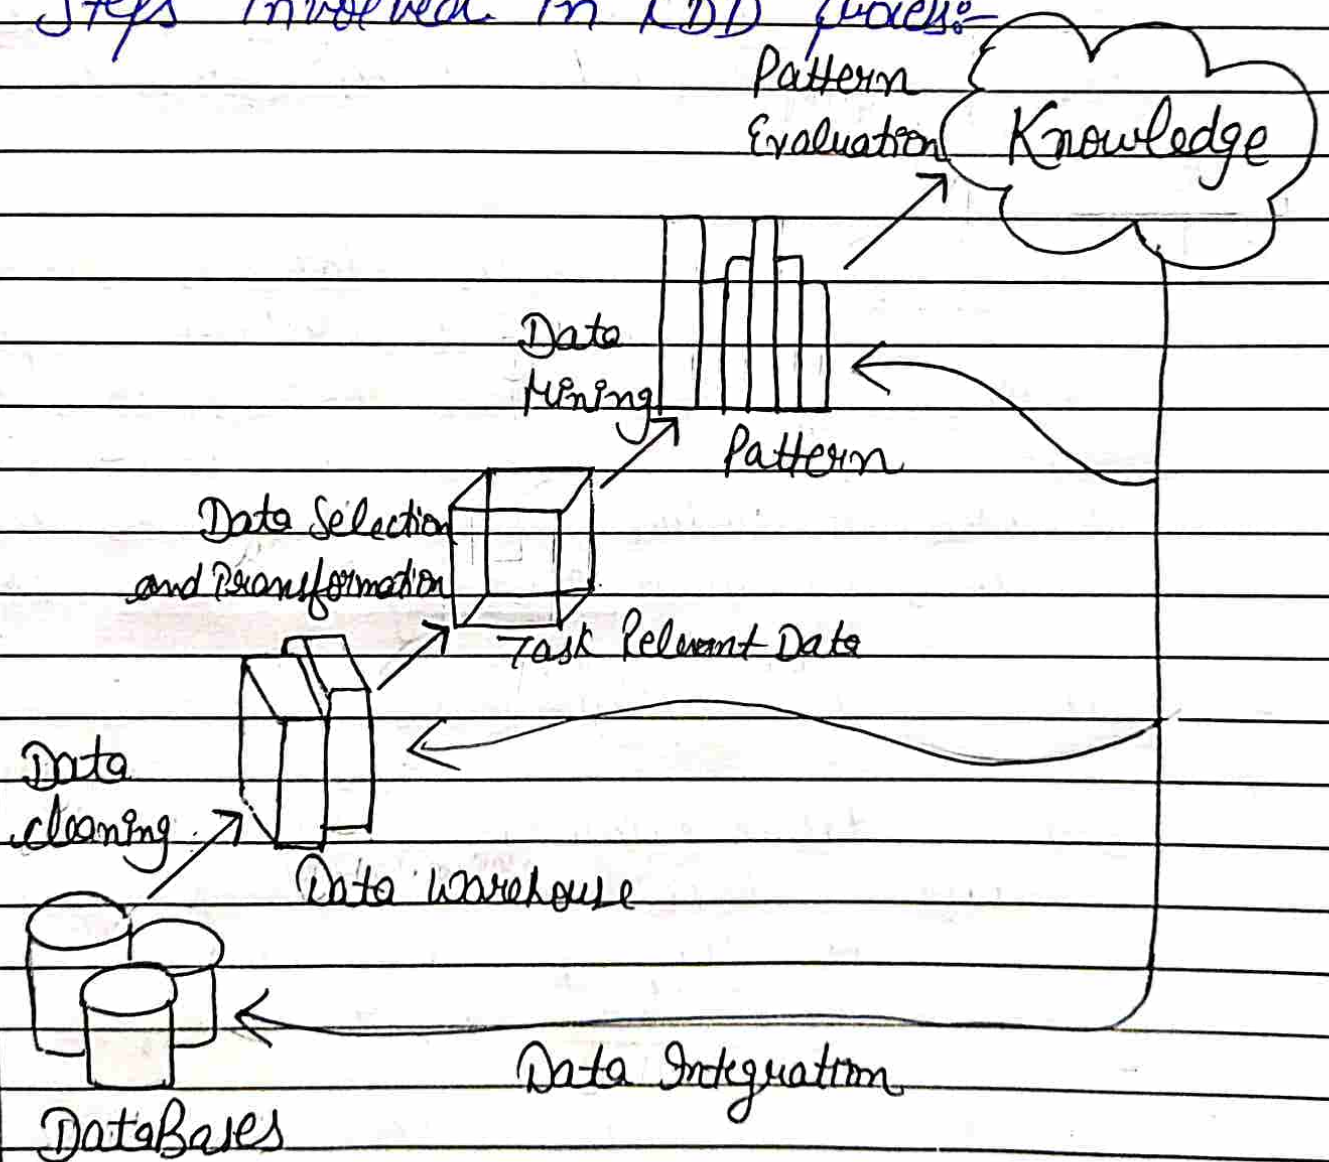 Steps involved in KDD process:-
Pattern
Evaluation
Knowledge
Data
Mining
Pattern
Data Selection
and Transformation
Task Relevant Data
Data
cleaning
Data Warehouse
Data Integration
DataBases